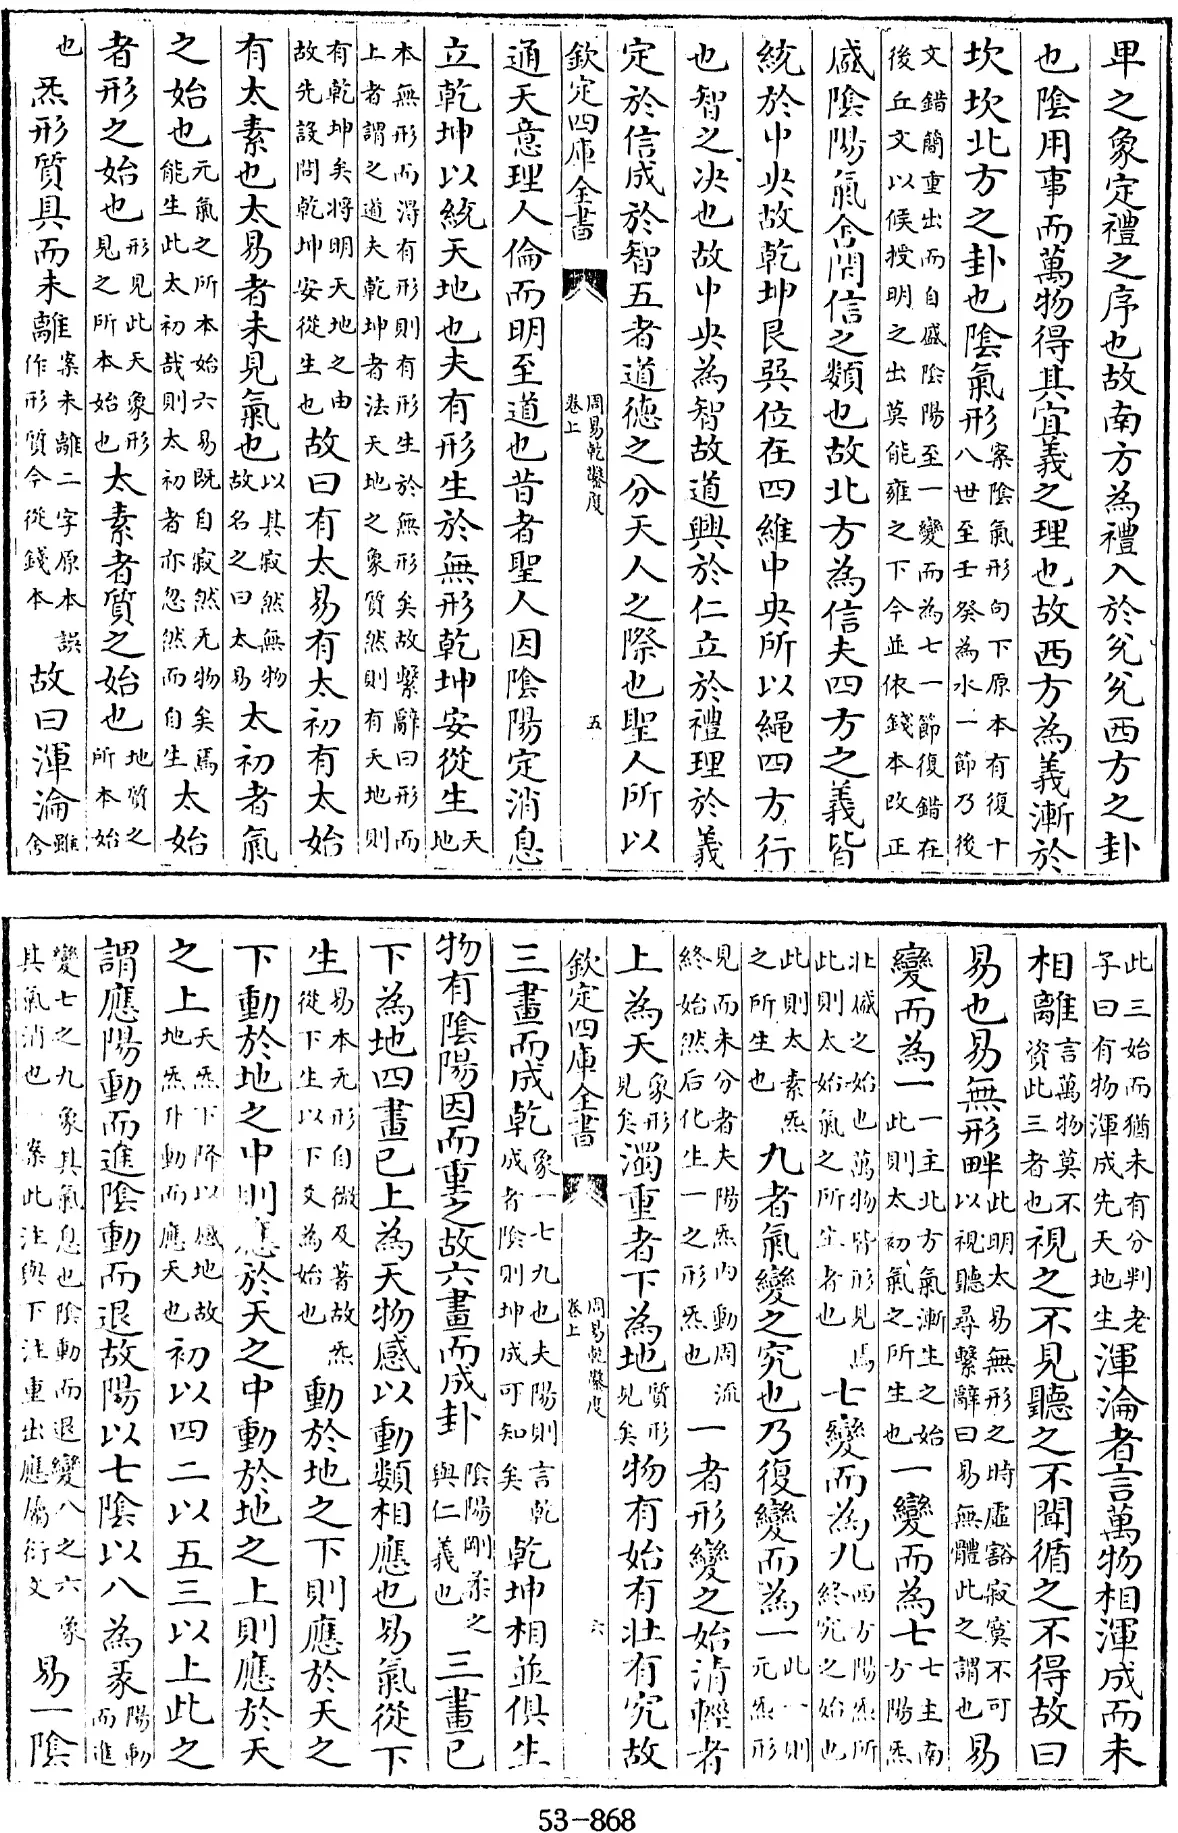 卑之象定禮之序也故南方為禮入於兊兊西方之卦
也陰用事而萬物得其宜義之理也故西方為義漸於
坎坎北方之卦也陰氣形案陰氣形句下原本有復十八世至壬癸為水一節乃後
文錯簡重出而自盛陰陽至一變而為七一節復錯在後丘文以候授明之出莫能雍之下今並依錢本改正
盛陰陽氣含閉信之類也故北方為信夫四方之義皆
統於中央故乾坤艮巽位在四維中央所以繩四方行
也智之决也故中央為智故道興於仁立於禮理於義
定於信成於智五者道德之分天人之際也聖人所以
欽定四庫全書 周易乾鑿度卷上 五
通天意理人倫而明至道也昔者聖人因陰陽定消息
立乾坤以統天地也夫有形生於無形乾坤安從生天地
本無形而得有形則有形生於無形矣故繫辭曰形而上者謂之道夫乾坤者法天地之象質然則有天地則
有乾坤矣將明天地之由故先設問乾坤安從生也故曰有太易有太初有太始
有太素也太易者未見氣也以其寂然無物故名之曰太易太初者氣
之始也元氣之所本始六易既自寂然无物矣焉能生此太初哉則太初者亦忽然而自生太始
者形之始也形見此天象形見之所本始也太素者質之始也地質之所本始
也炁形質具而未離案未離二字原本誤作形質今從錢本故曰渾淪雖含
此三始而猶未有分判老子曰有物渾成先天地生渾淪者言萬物相渾成而未
相離言萬物莫不資此三者也視之不見聽之不聞循之不得故曰
易也易無形畔此明太易無形之時虛豁寂寞不可以視聽尋繫辭曰易無體此之謂也易
變而為一一主北方氣漸生之始此則太初氣之所生也一變而為七七主南方陽炁
壯盛之始也萬物皆形見焉此則太始氣之所生者也七變而為九西方陽炁所終究之始也
此則太素炁之所生也九者氣變之究也乃復變而為一此一則元炁形
見而未分者夫陽炁內動周流終始然后化生一之形炁也一者形變之始清輕者
上為天象形見矣濁重者下為地質形見矣物有始有壯有究故
欽定四庫全書 周易乾鑿度卷上 六
三畫而成乾象一七九也夫陽則言乾成者陰則坤成可知矣乾坤相並俱生
物有陰陽因而重之故六畫而成卦陰陽剛柔之與仁義也三畫已
下為地四畫已上為天物感以動類相應也易氣從下
生易本无形自微及著故炁從下生以下爻為始也動於地之下則應於天之
下動於地之中則應於天之中動於地之上則應於天
之上天炁下降以感地故地炁升動而應天也初以四二以五三以上此之
謂應陽動而進陰動而退故陽以七陰以八為彖陽動而進
變七之九象其氣息也陰動而退變八之六象其氣消也案此注與下注重出應屬衍文易一陰
53-868